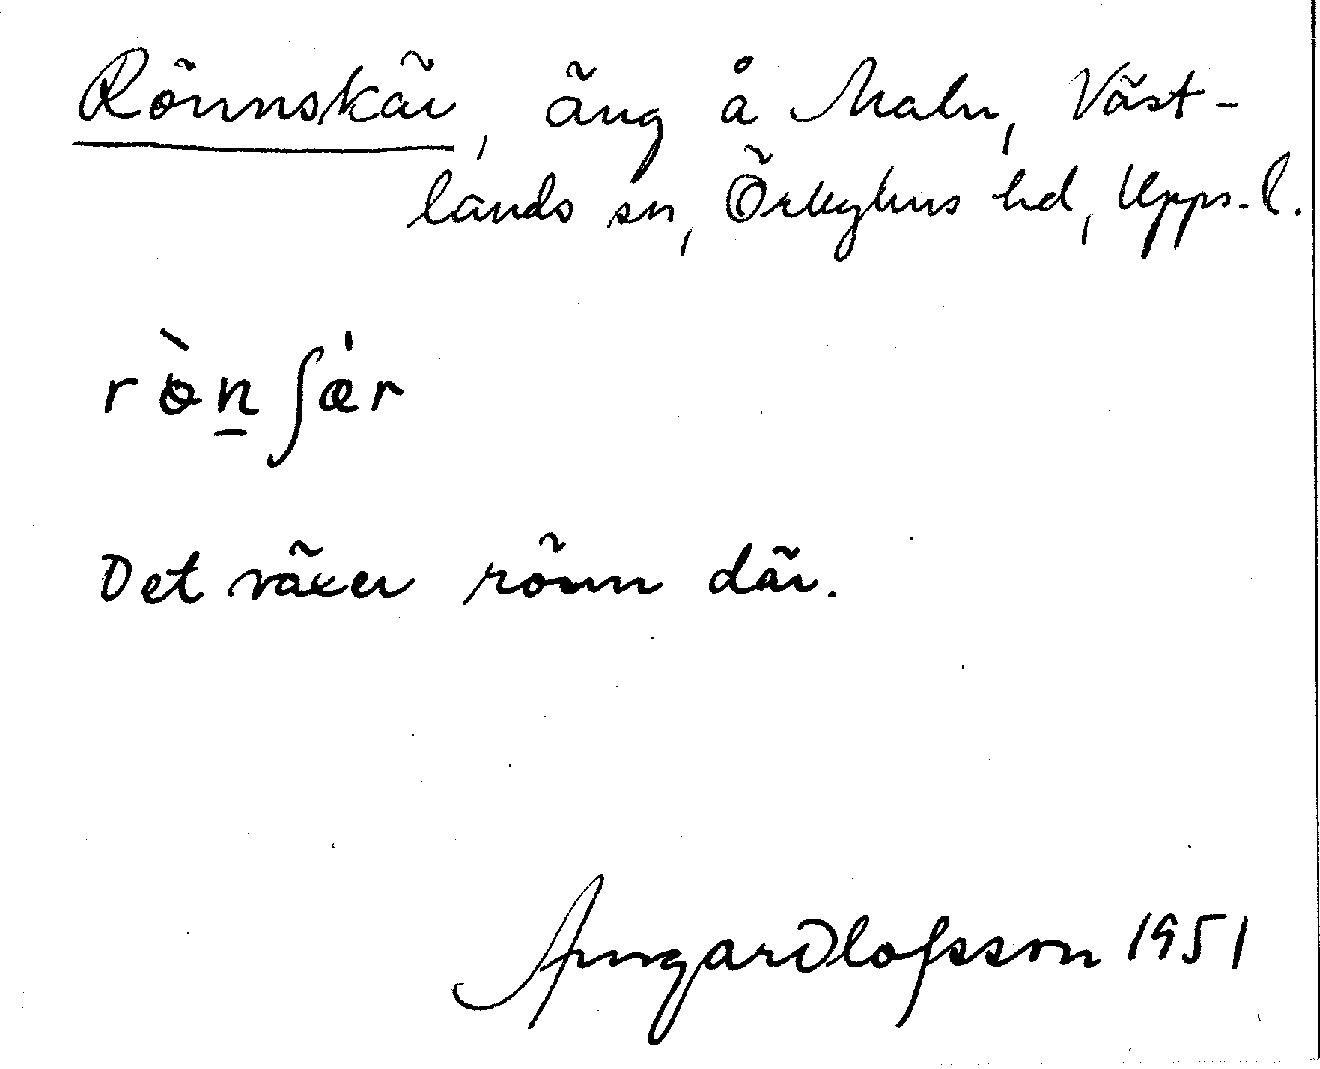 Rönnskär, äng å Maln, Väst-
lands sn, Örbyhus hd, Upps. l.
rò̵n̲ʃǽr
Det växer rönn där.
Ingar Olofsson 1951